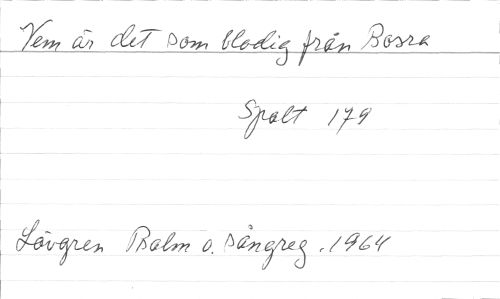 Vem är det som blodig från Bosra
Spalt 179
Lövgren Psalm o. sångreg. 1964